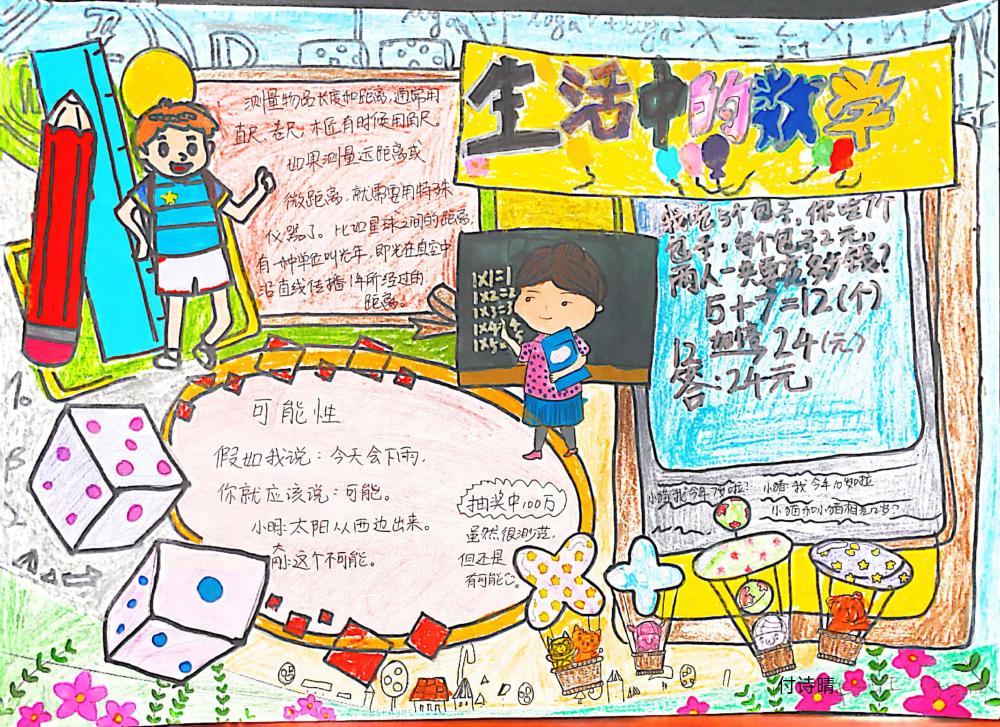 生活中的数学
测量物品长度和距离,通常用
直尺、卷尺,木匠有时候用角尺。
如果测量远距离或
微距离,就需要用特殊
仪器了。比如星球之间的距离,
有一种单位叫光年,即光在真空中
沿直线传播1年所经过的
距离。
我吃5个包子,你吃7个
包子,每个包子2元。
两人一共要花多少钱?
5+7=12(个)
24(元)
答:24元
1X1=1
1X2=2
1X3=3
1X4=4
1X5=
可能性
假如我说:今天会下雨。
你就应该说:可能。
小明:太阳从西边出来。
这个不可能。
抽奖中100万
虽然很渺茫,
但还是
有可能的。
小猫:我今年7岁啦!
小猪:我今年10岁啦
付诗晴